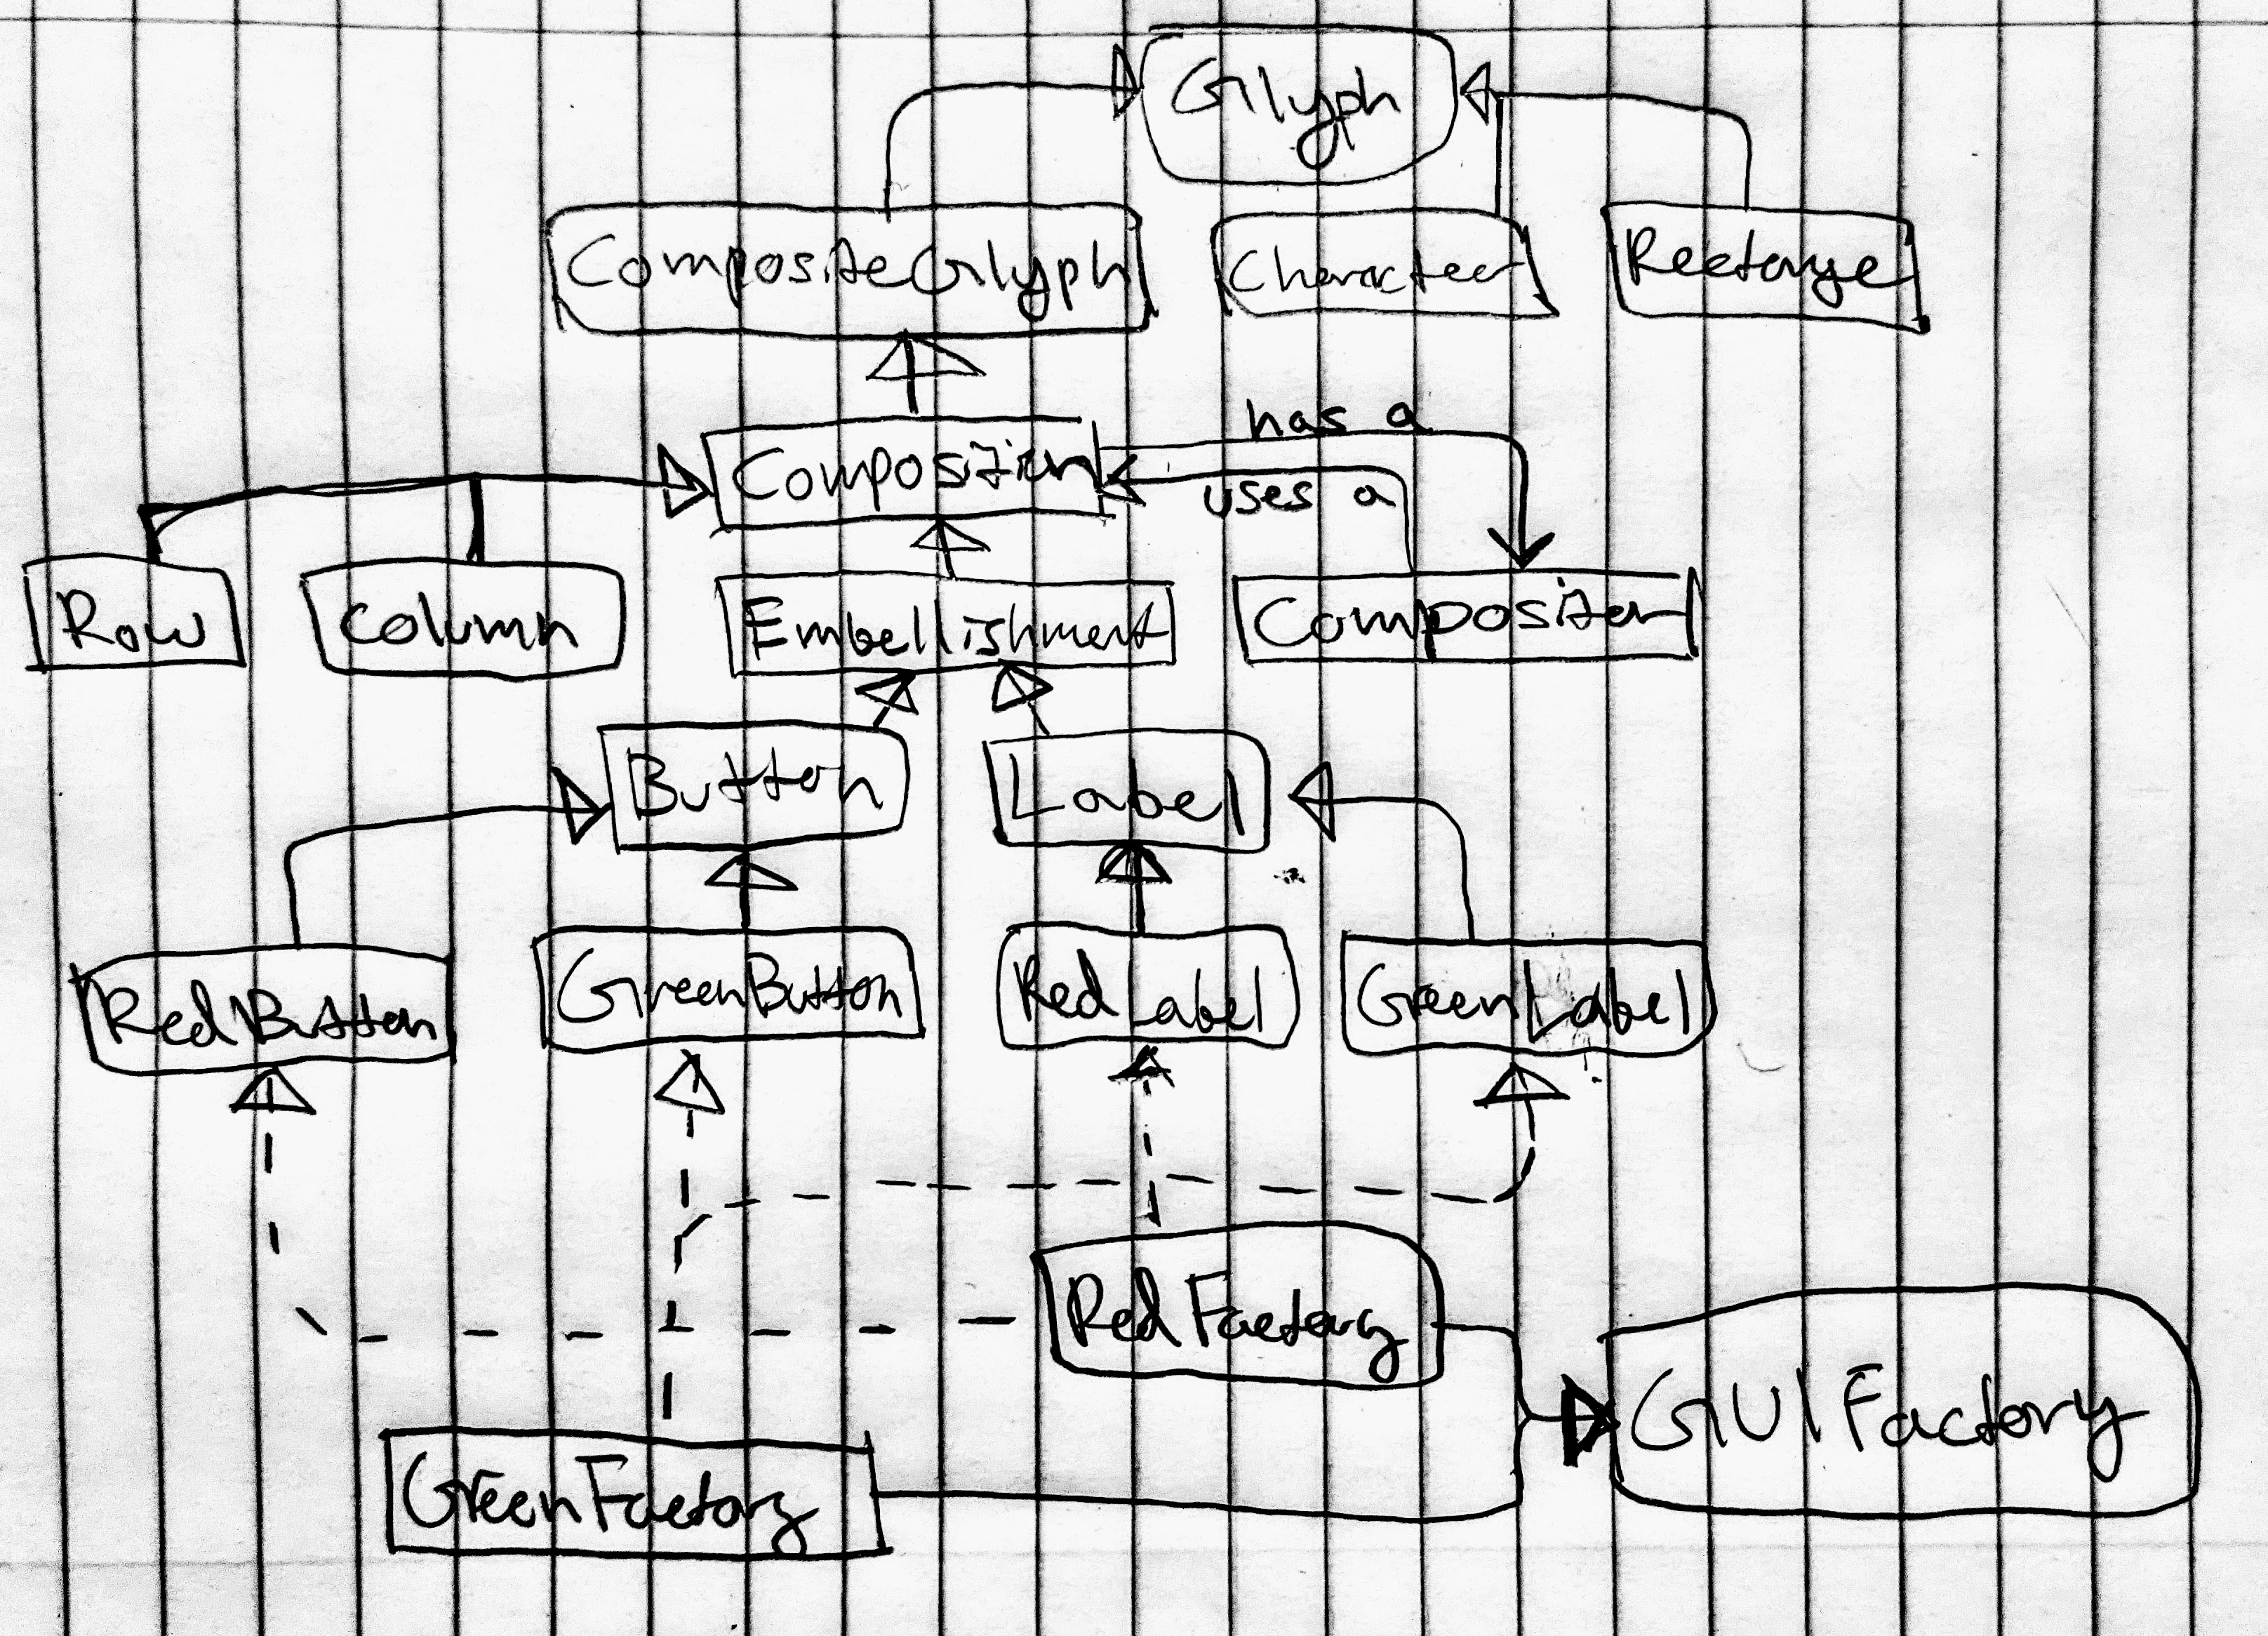 Glyph
CompositeGlyph
Character
Rectange
has a
Composition
uses a
Row
Column
Embellishment
Compositor
Button
Label
RedButton
GreenButton
RedLabel
GreenLabel
RedFactory
GUIFactory
GreenFactory